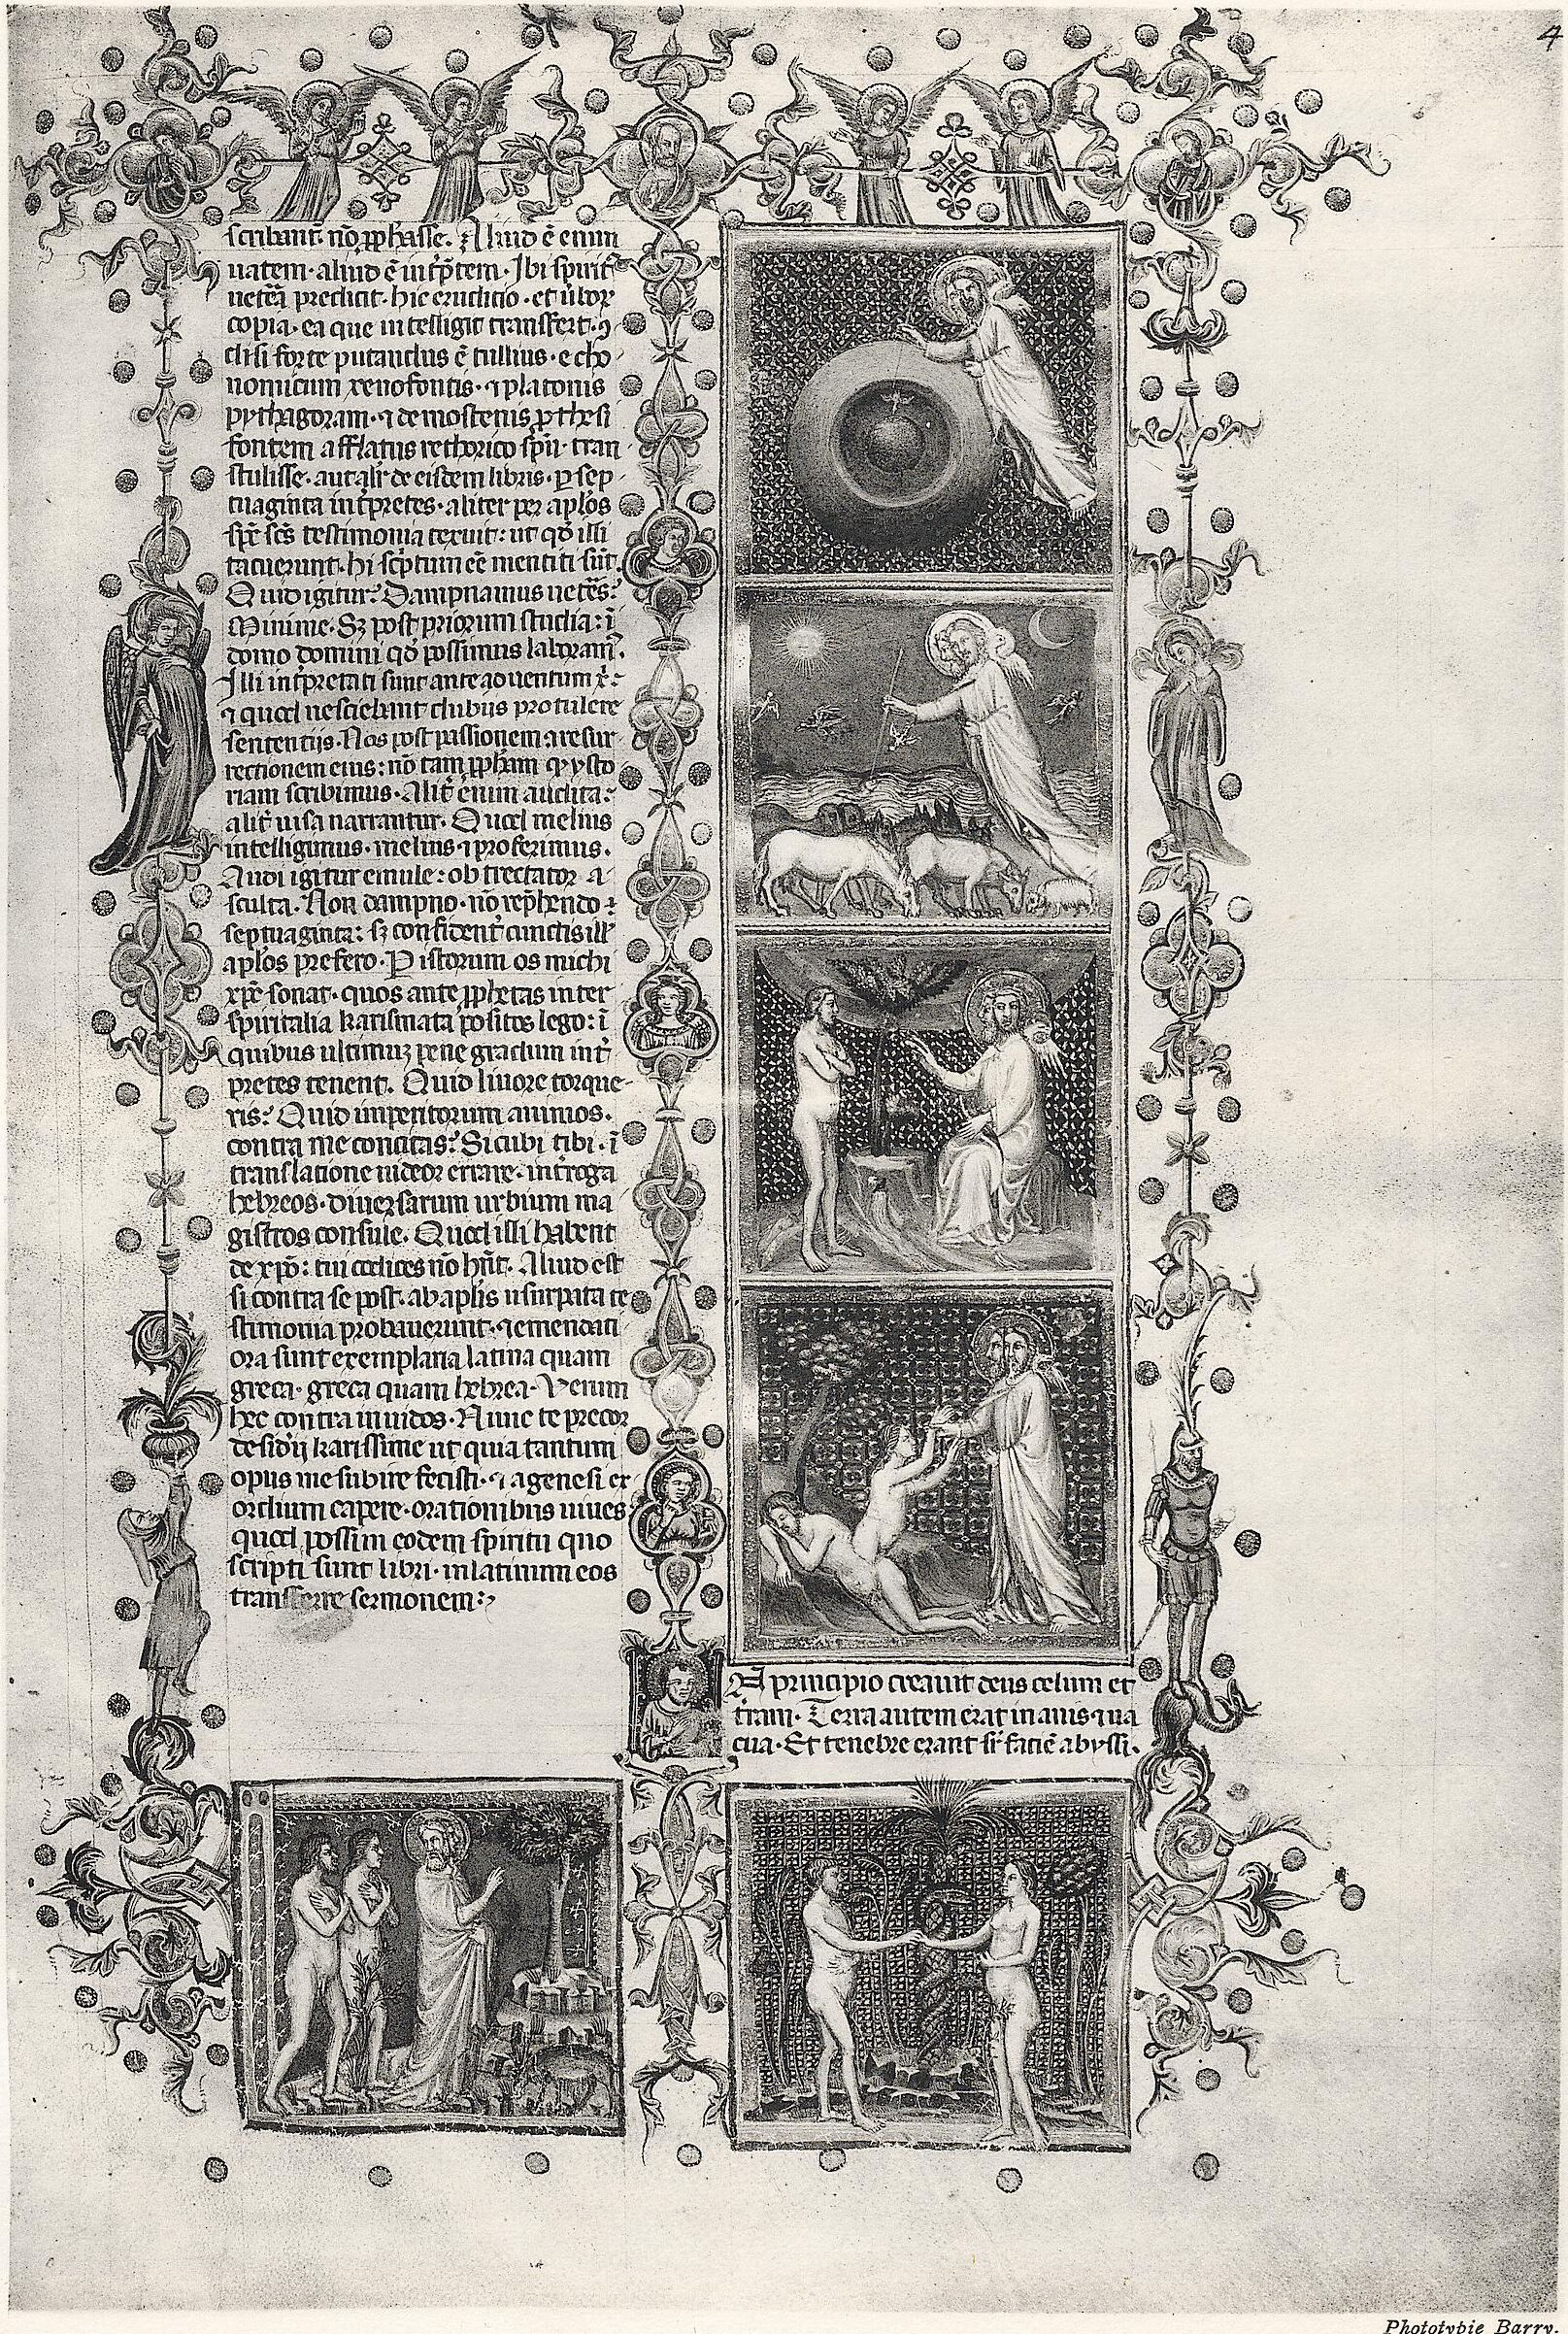 4
scribant. nō ꝓphasse. Aliud ē enim
uatem. aliud ē īt̄ꝑtem. Ibi spirit᷒
uētā predicit. hic eruditio. et ūbor
copia. ea que intelligit transfert. 
nisi forte putandus ē tullius. echo
nomicum xenofontis. ⁊ platonis
pythagoram. ⁊ demostenis ꝓthesi
fontem afflatus rethorico sp̄u. tran
stulisse. aut alit̄ de eisdem libris. ꝑ sep
tuaginta int̄pretes. aliter per aplōs
sp̄c sc̄s testimonia texuit: ut qd̄ illi
tacuerunt. hi sc̄ptum eē mentiti sūt.
Quid igitur? Dampnamus uetēs?
Minime. Sꝫ post priorum studia: ī
domo domini qd̄ possimus laboram᷒.
Illi int̄pretati sunt ante aduentum x̄:
⁊ quod nesciebant dubiis protulere
sententijs. Nos post passionem ⁊ resur
rectionem eius: nō tam ꝓphām q̄ ysto
riam scribimus. Alit̄ enim audita:
alit̄ uisa narrantur. Quod melius
intelligimus. melius ⁊ proferimus.
Audi igitur emule: obtrectator a
sculta. Non dampno. nō rep̄hendo
septuaginta: sꝫ confident̄ cunctis ill᷒
aplōs prefero. P istorum os michi
xp̄c sonat. quos ante ꝓphetas inter
spiritalia karismata positos lego: ī
quibus ultimuꝫ pene gradum int̄
pretes tenent. Quid liuore torque
ris? Quid imperitorum animos.
contra me concitas? Sicubi tibi. ī
translatione uideor errare. int̄roga
hebreos. diuersarum urbium ma
gistros consule. Quod illi habent
de xpō: tui codices nō hn̄t. Aliud est
si contra se post. ab aplīs usurpata te
stimonia probauerunt. ⁊ emendati
ora sunt exemplaria latina quam
greca. greca quam hebrea. Verum
hec contra inuidos. Nunc te precor
desid̄ij karissime ut quia tantum
opus me subire fecisti. ⁊ a genesi ex
ordium capere. orationibus iuues
quod possim eodem spiritu quo
scripti sunt libri. in latinum eos
transferre sermonem:
A principio creauit deus celum et
t̄ram. Terra autem erat inanis ⁊ ua
cua. Et tenebre erant sr̄ faciē abyssi.
Phototypie Barry.